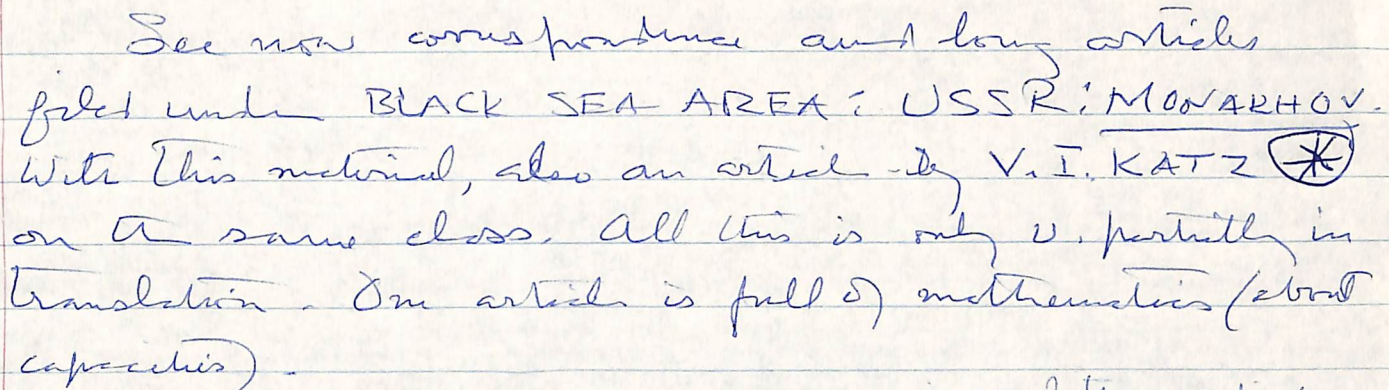 See now correspondence and long articles
filed under BLACK SEA AREA: USSR: MONAKHOV.
With this material, also an article by V. I. KATZ
on the same class. All this is only v. partially in
translation. One article is full of mathematics (about
capacities).